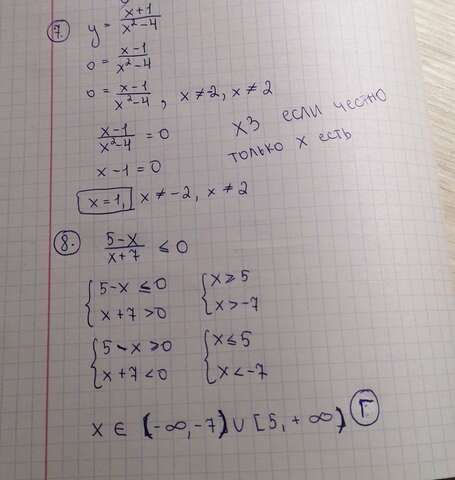 7. y = (x+1)/(x²-4)
0 = (x-1)/(x²-4)
0 = (x-1)/(x²-4), x ≠ -2, x ≠ 2
(x-1)/(x²-4) = 0
хз если честно
только x есть
x-1 = 0
x = 1, x ≠ -2, x ≠ 2
8. (5-x)/(x+7) ≤ 0
{ 5-x ≤ 0 { x ≥ 5
{ x+7 > 0 { x > -7
{ 5-x ≥ 0 { x ≤ 5
{ x+7 < 0 { x < -7
x ∈ (-∞, -7) ∪ [5, +∞) Г